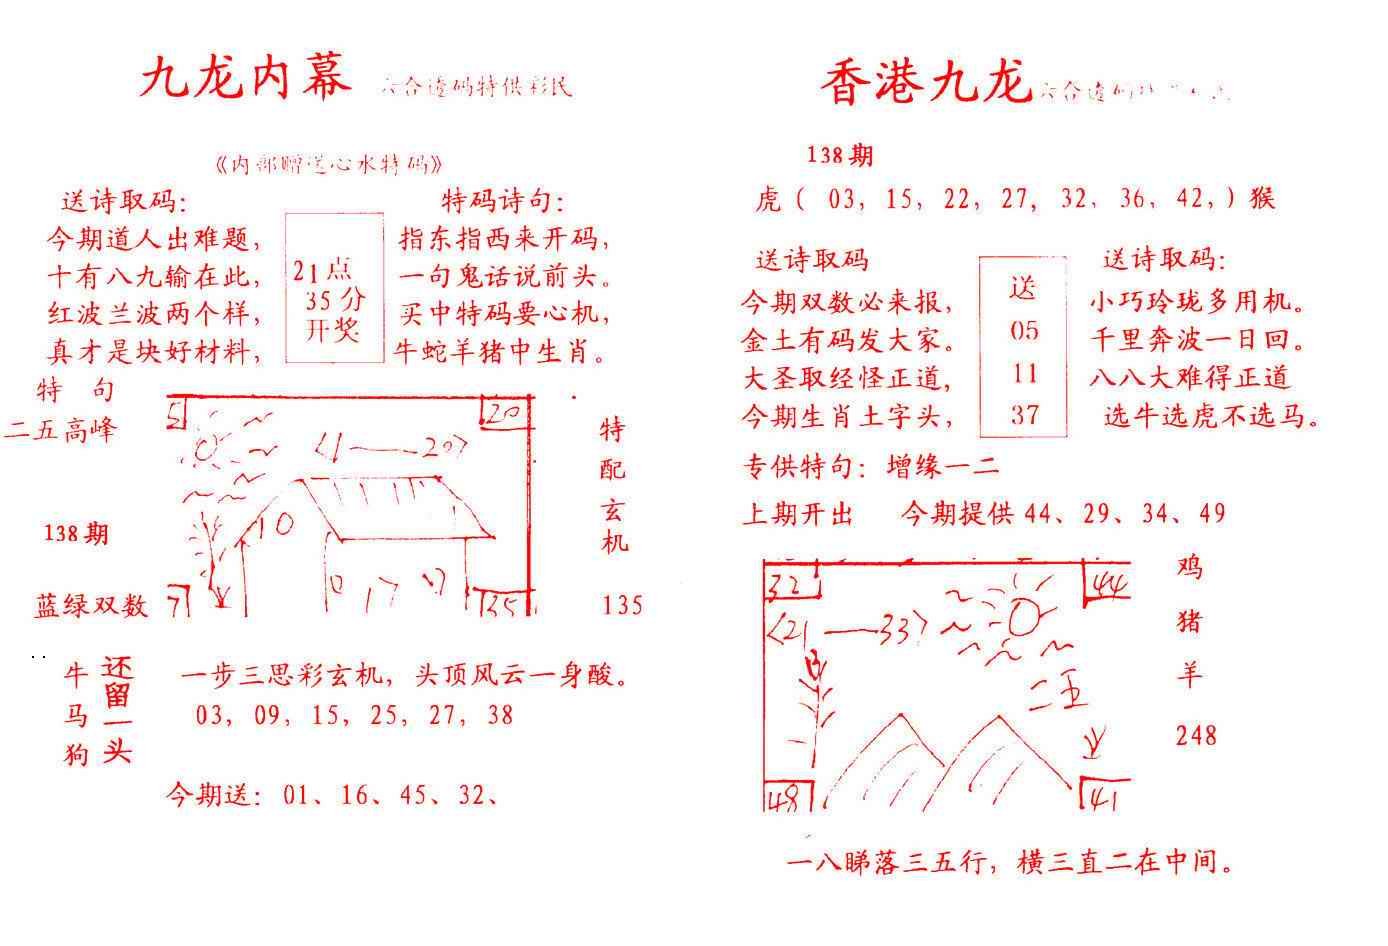 九龙内幕 六合透码特供彩民
《内部赠送心水特码》
送诗取码：
今期道人出难题，
十有八九输在此，
红波兰波两个样，
真才是块好材料，
21点
35分
开奖
特码诗句：
指东指西来开码，
一句鬼话说前头。
买中特码要心机，
牛蛇羊猪中生肖。
特 句
二五高峰
138期
蓝绿双数
5
20
〈1——20〉
10
0 17
7
35
特
配
玄
机
135
牛
马
狗
还
留
一
头
一步三思彩玄机，头顶风云一身酸。
03，09，15，25，27，38
今期送：01、16、45、32、
香港九龙 六合透码
138期
虎（ 03，15，22，27，32，36，42，）猴
送诗取码
今期双数必来报，
金土有码发大家。
大圣取经怪正道，
今期生肖土字头，
送
05
11
37
送诗取码：
小巧玲珑多用机。
千里奔波一日回。
八八大难得正道
选牛选虎不选马。
专供特句：增缘一二
上期开出 今期提供44、29、34、49
32
44
〈21——33〉
二五
48
41
鸡
猪
羊
248
一八睇落三五行，横三直二在中间。